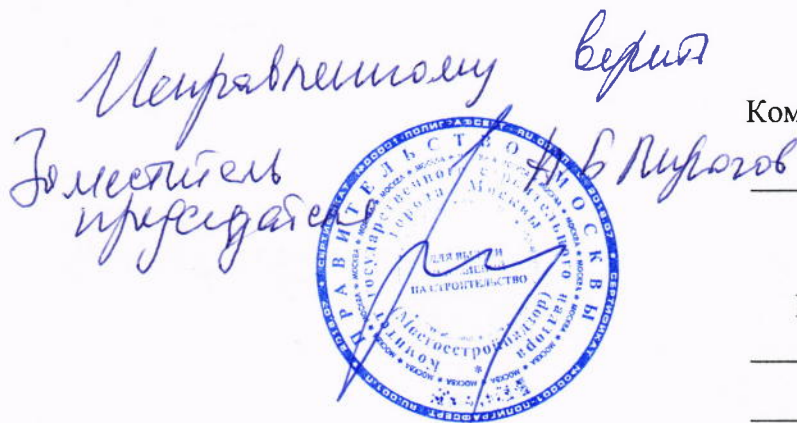 Исправленному верить
Ком
Заместитель
председателя
А Б Пирогов
ПРАВИТЕЛЬСТВО МОСКВЫ
Комитет государственного строительного надзора
города Москвы
(Мосгосстройнадзор)
НА СТРОИТЕЛЬСТВО